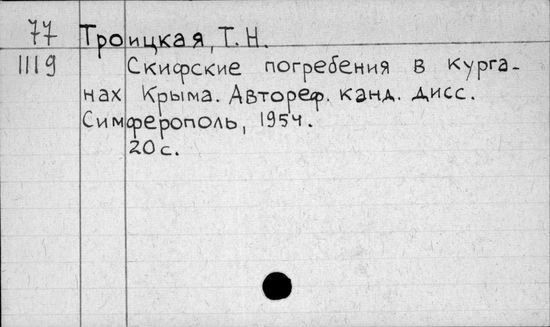 77 Троицкая, Т. Н.
1119 Скифские погребения в курга-
нах Крыма. Автореф. канд. дисс.
Симферополь, 1954.
20 с.